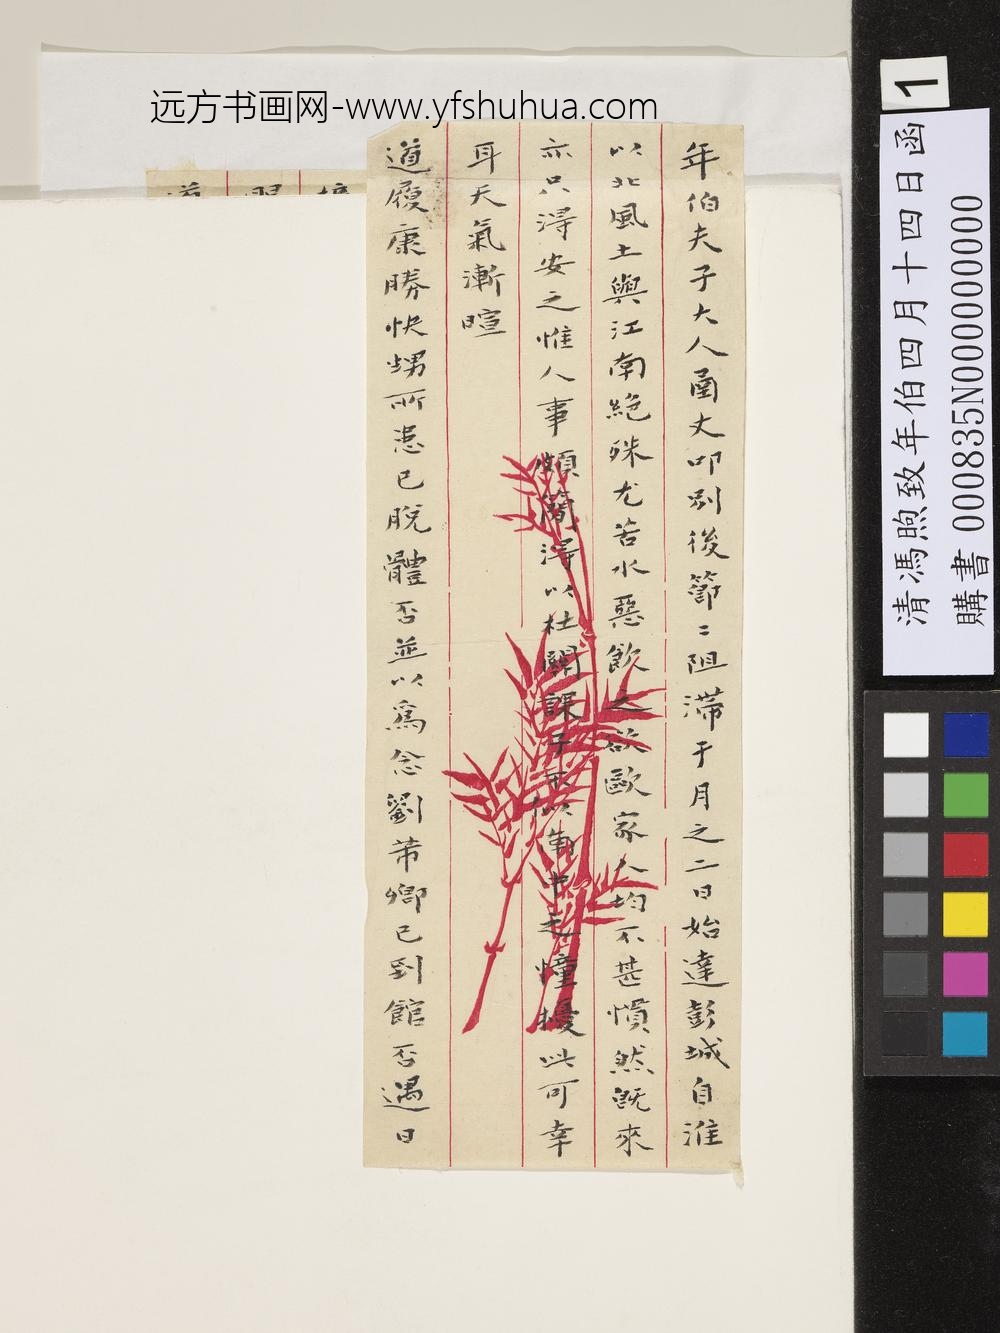 远方书画网-www.yfshuhua.com
年伯夫子大人函丈叩別後節〻阻滯于月之二日始達彭城自淮
以北風土與江南絕殊尤苦水惡飲之欲歐家人均不甚慣然旣來
亦只得安之惟人事頗簡得以杜關課子不似南中之憧擾此可幸
耳天氣漸暄
道履康勝快甥所患已脫體否並以爲念劉芾卿已到館否遇日
1
清馮煦致年伯四月十四日函
購書 000835N000000000